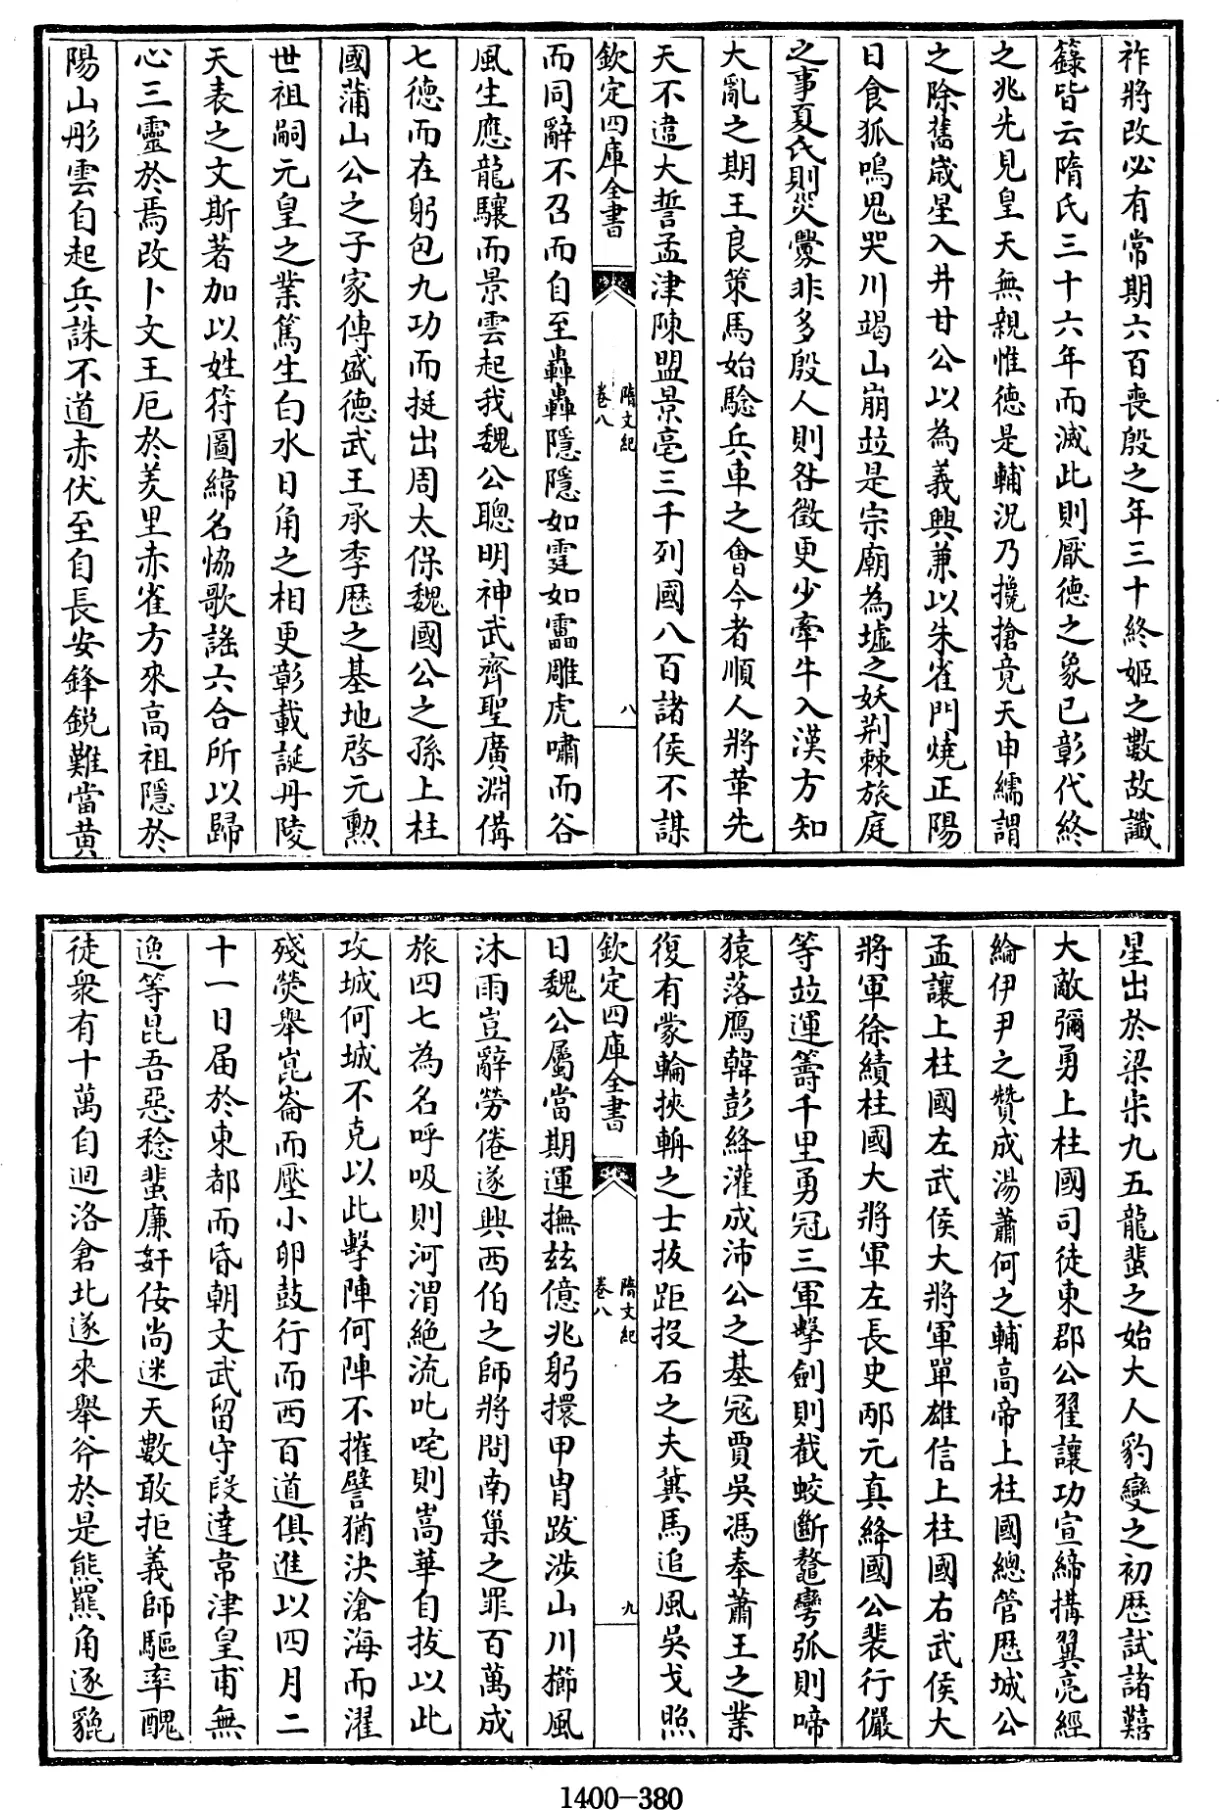 祚將改必有常期六百喪殷之年三十終姬之數故讖
籙皆云隋氏三十六年而滅此則厭德之象已彰代終
之兆先見皇天無親惟德是輔況乃攙搶竟天申繻謂
之除舊歲星入井甘公以為義興兼以朱雀門燒正陽
日食狐鳴鬼哭川竭山崩竝是宗廟為墟之妖荆棘旅庭
之事夏氏則災釁非多殷人則咎徵更少牽牛入漢方知
大亂之期王良策馬始驗兵車之會今者順人將革先
天不違大誓孟津陳盟景亳三千列國八百諸侯不謀
欽定四庫全書
隋文紀
卷八
八
而同辭不召而自至轟轟隱隱如霆如靁雕虎嘯而谷
風生應龍驤而景雲起我魏公聰明神武齊聖廣淵備
七德而在躬包九功而挺出周太保魏國公之孫上柱
國蒲山公之子家傳盛德武王承季歷之基地啓元勲
世祖嗣元皇之業篤生白水日角之相更彰載誕丹陵
天表之文斯著加以姓符圖緯名恊歌謡六合所以歸
心三靈於焉改卜文王厄於羑里赤雀方來高祖隱於
陽山彤雲自起兵誅不道赤伏至自長安鋒銳難當黄
星出於梁宋九五龍蜚之始大人豹變之初歴試諸囏
大敵彌勇上柱國司徒東郡公翟讓功宣締搆翼亮經
綸伊尹之贊成湯蕭何之輔高帝上柱國總管歴城公
孟讓上柱國左武侯大將軍單雄信上柱國右武侯大
將軍徐績柱國大將軍左長史邴元真絳國公裴行儼
等竝運籌千里勇冠三軍擊劍則截蛟斷鼇彎弧則啼
猿落鴈韓彭絳灌成沛公之基寇賈吳馮奉蕭王之業
復有蒙輪挾輈之士拔距投石之夫冀馬追風吳戈照
欽定四庫全書
隋文紀
卷八
九
日魏公屬當期運撫玆億兆躬擐甲冑跋涉山川櫛風
沐雨豈辭勞倦遂興西伯之師將問南巢之罪百萬成
旅四七為名呼吸則河渭絶流叱咤則嵩華自拔以此
攻城何城不克以此擊陣何陣不摧譬猶決滄海而濯
殘熒舉崑崙而壓小卵鼓行而西百道俱進以四月二
十一日届於東都而昏朝文武留守段達韋津皇甫無
逸等昆吾惡稔蜚廉奸佞尚迷天數敢拒義師驅率醜
徒衆有十萬自迴洛倉北遂來舉斧於是熊羆角逐貔
1400-380